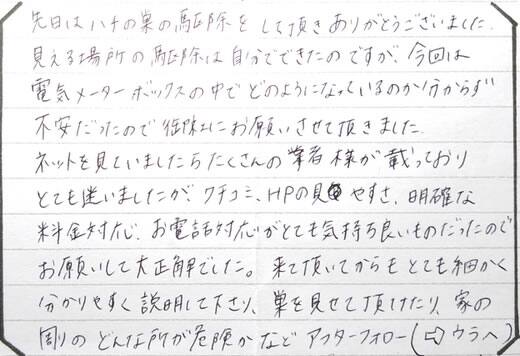 先日はハチの巣の駆除をして頂きありがとうございました。
見える場所の駆除は自分でできたのですが、今回は
電気メーターボックスの中でどのようになっているのか分からず
不安だったので御社にお願いさせて頂きました。
ネットを見ていましたらたくさんの業者様が載っており
とても迷いましたが、クチコミ、HPの見やすさ、明確な
料金対応、お電話対応がとても気持ち良いものだったので
お願いして大正解でした。来て頂いてからもとても細かく
分かりやすく説明して下さり、巣を見せて頂けたり、家の
周りのどんな所が危険かなどアフターフォロー(⇨ウラへ)